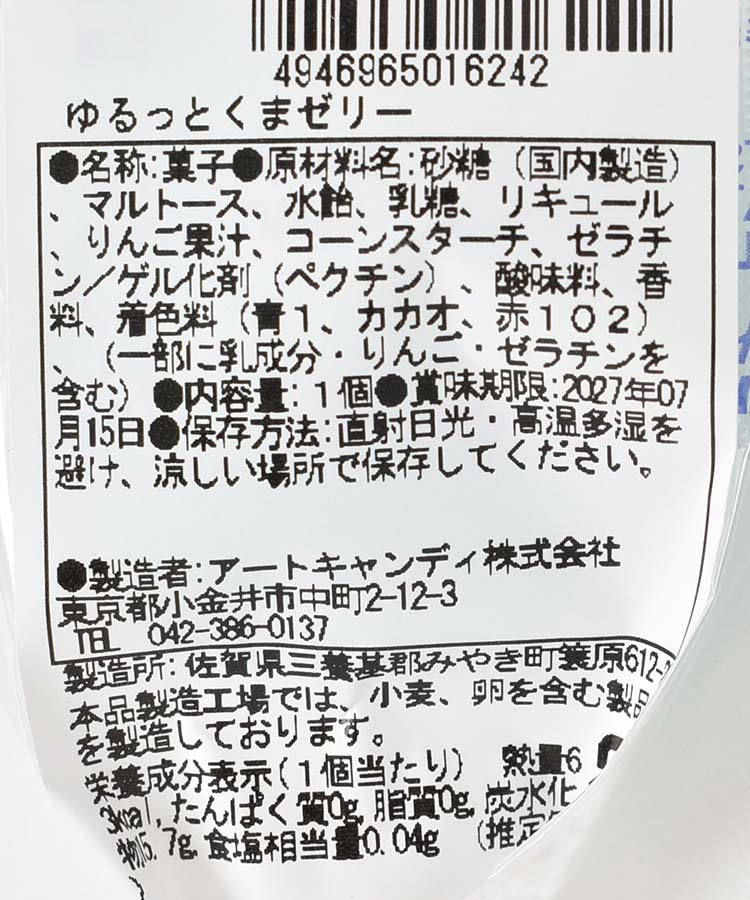 4946965016242
ゆるっとくまゼリー
●名称:菓子●原材料名:砂糖（国内製造）
、マルトース、水飴、乳糖、リキュール
、りんご果汁、コーンスターチ、ゼラチ
ン／ゲル化剤（ペクチン）、酸味料、香
料、着色料（青１、カカオ、赤１０２）
、（一部に乳成分・りんご・ゼラチンを
含む）●内容量:１個●賞味期限:2027年07
月15日●保存方法:直射日光・高温多湿を
避け、涼しい場所で保存してください。
●製造者:アートキャンディ株式会社
東京都小金井市中町2-12-3
TEL 042-386-0137
製造所:佐賀県三養基郡みやき町簑原612-
本品製造工場では、小麦、卵を含む製品
を製造しております。
栄養成分表示(１個当たり) 熱量6
3kcal,たんぱく質0g,脂質0g,炭水化
物15.7g,食塩相当量0.04g (推定